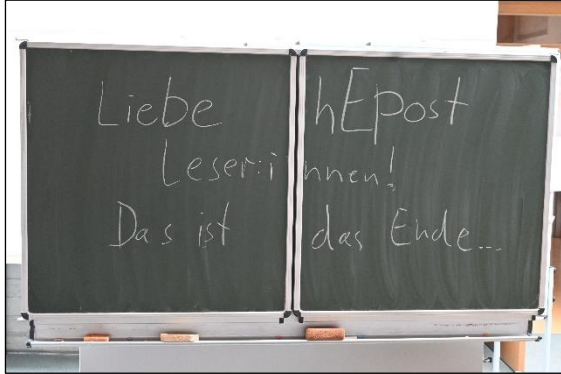 Liebe hEpost
Leser:innen!
Das ist das Ende...